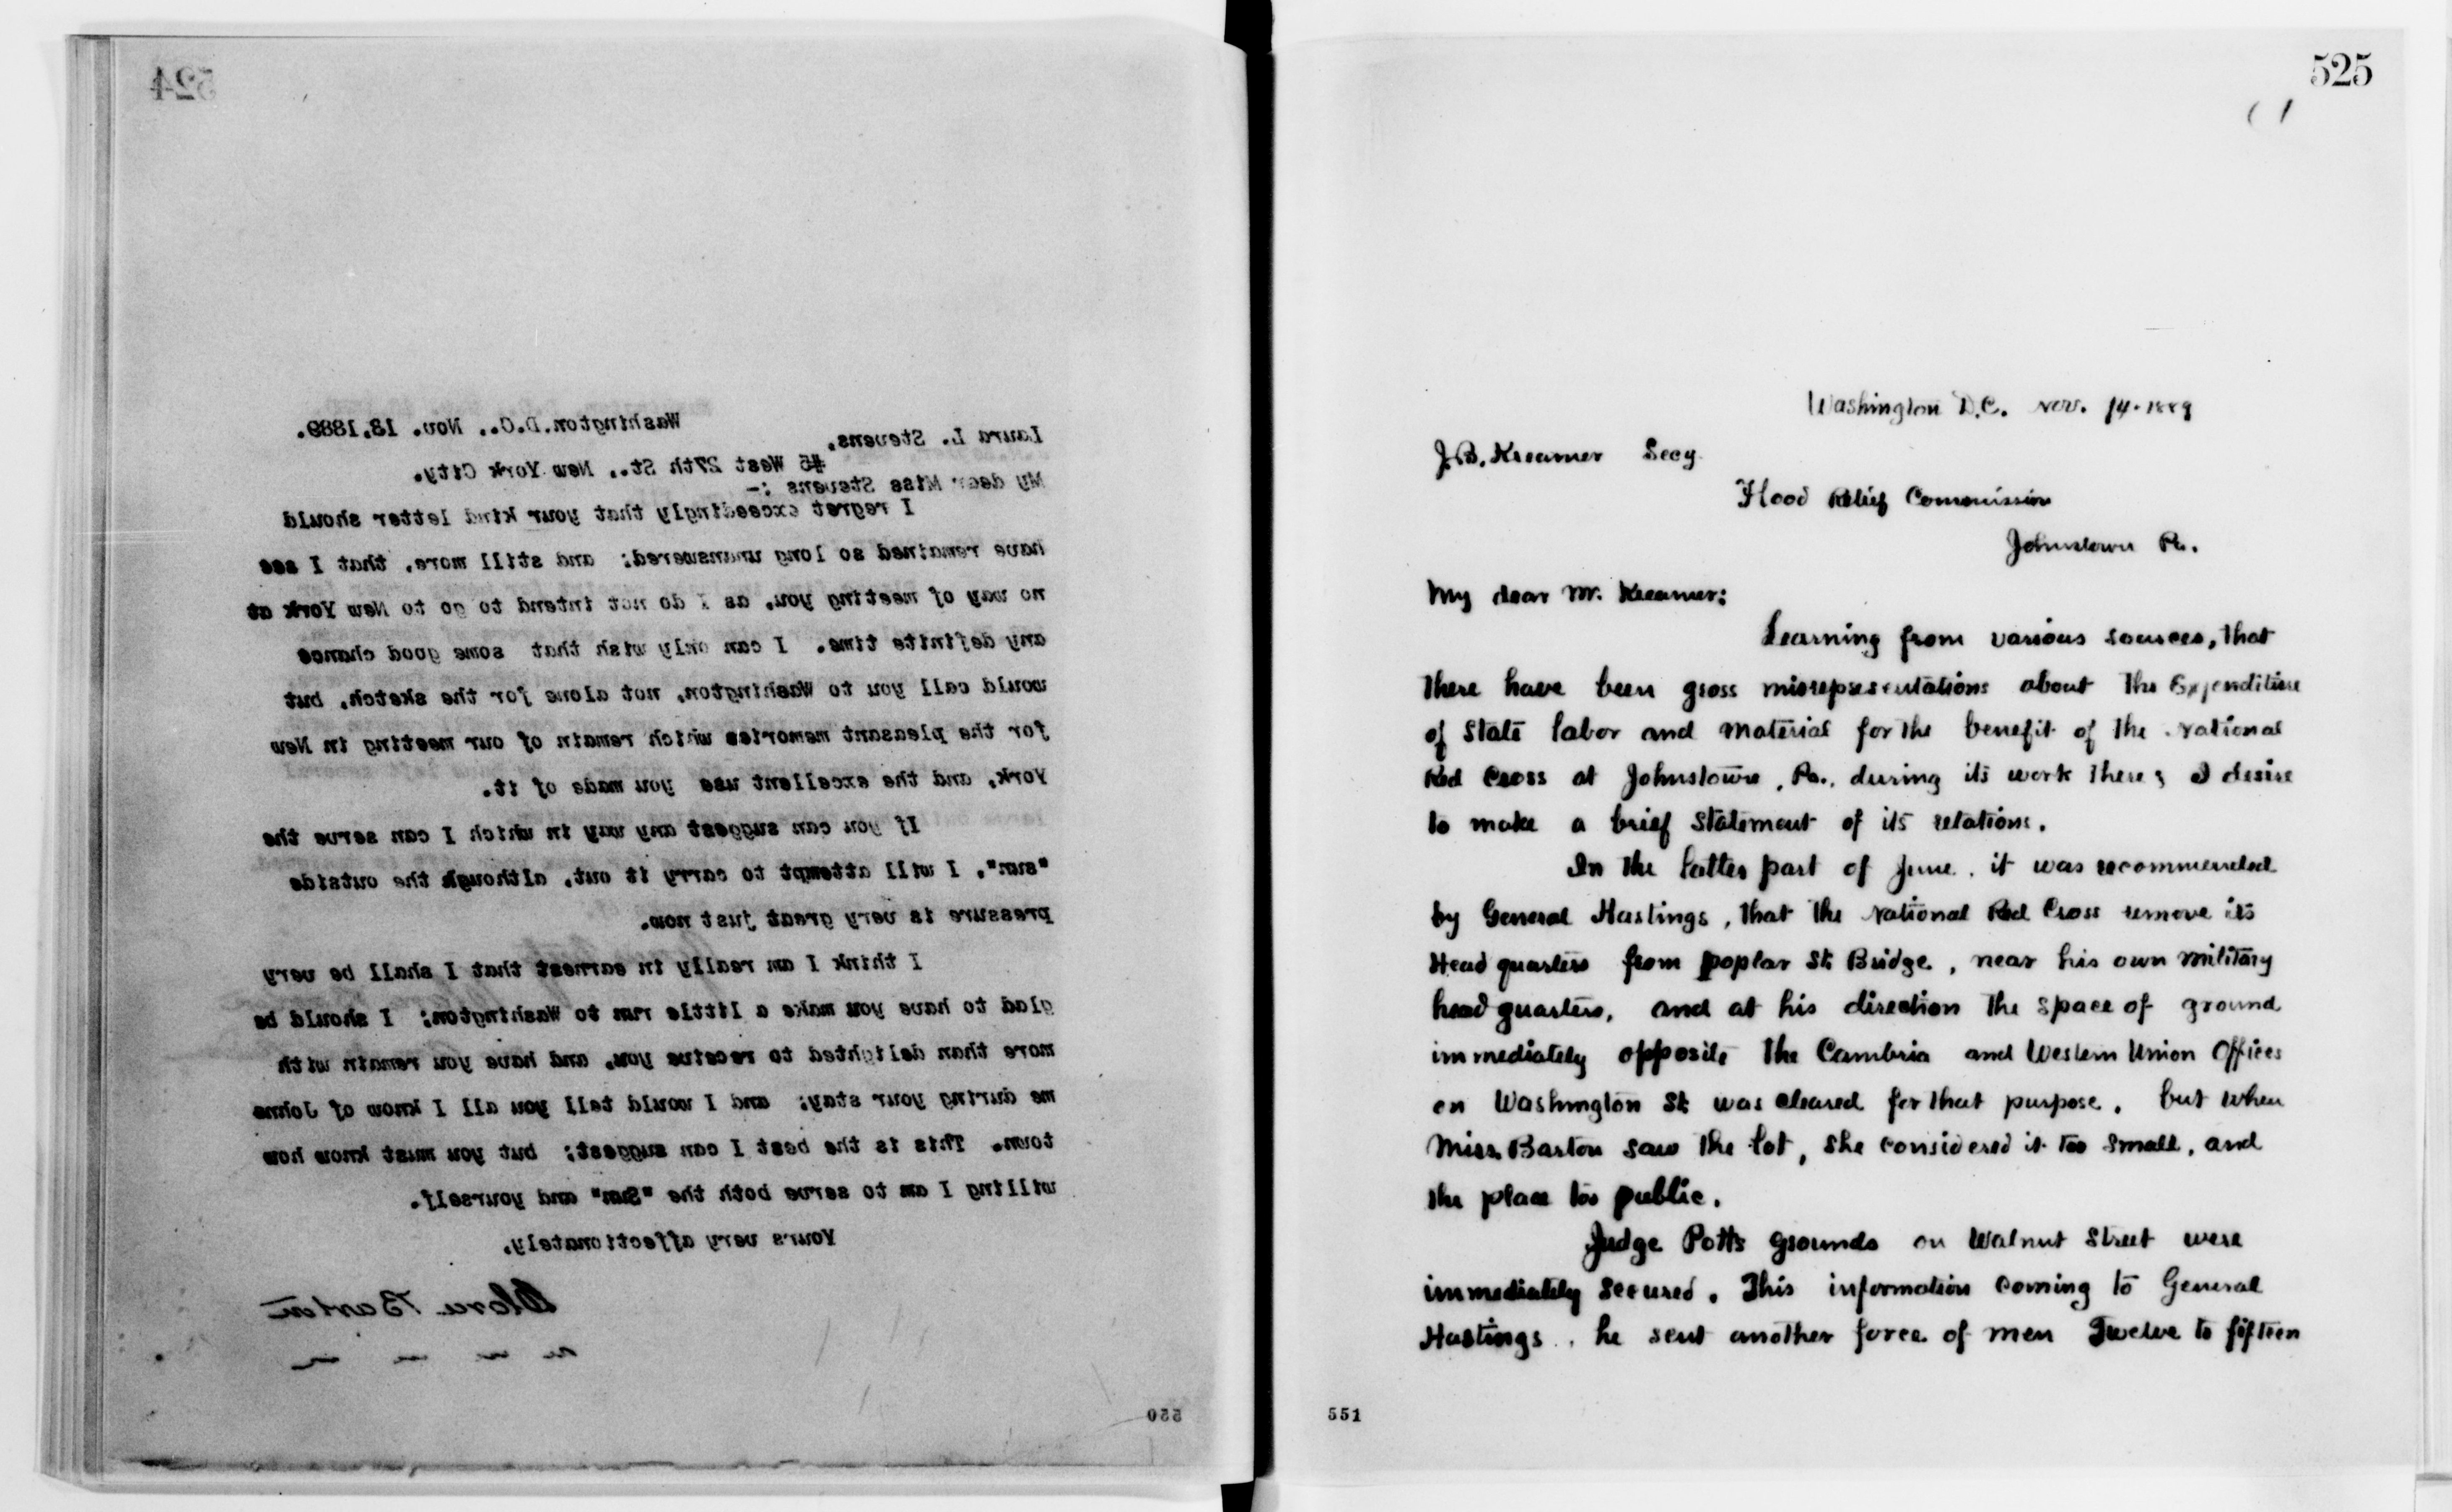 524
Washington.D.C.. Nov. 13,1889.
Laura L. Stevens.
#5 West 27th St.. New York City.
My dear Miss Stevens :-
I regret exceedingly that your kind letter should
have remained so long unanswered; and still more, that I see
no way of meeting you, as I do not intend to go to New York at
any definite time. I can only wish that some good chance
would call you to Washington, not alone for the sketch, but
for the pleasant memories which remain of our meeting in New
York, and the excellent use you made of it.
If you can suggest any way in which I can serve the
"sun", I will attempt to carry it out, although the outside
pressure is very great just now.
I think I am really in earnest that I shall be very
glad to have you make a little run to Washington; I should be
more than delighted to receive you, and have you remain with
me during your stay; and I would tell you all I know of Johns
town. This is the best I can suggest; but you must know how
willing I am to serve both the "Sun" and yourself.
Yours very affectionately,
Clara Barton
550
525
( 1
Washington D.C. Nov. 14. 1889
J.B. Kreamer Secy
Flood Relief Commission
Johnstown Pa.
My dear Mr. Kreamer:
Learning from various sources, that
there have been gross misrepresentations about the Expenditure
of State labor and material for the benefit of the National
Red Cross at Johnstown, Pa., during its work there; I desire
to make a brief statement of its relations.
In the latter part of June, it was recommended
by General Hastings, that the National Red Cross remove its
Head quarters from poplar St. Bridge, near his own military
head quarters, and at his direction the space of ground
immediately opposite the Cambria and Western Union Offices
on Washington St. was cleared for that purpose, but when
Miss Barton saw the lot, she considered it too small, and
the place too public.
Judge Potts grounds on Walnut Street were
immediately secured. This information coming to General
Hastings, he sent another force of men Twelve to fifteen
551